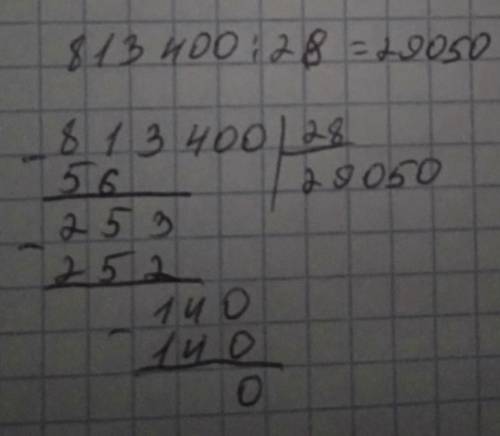 813400:28 = 29050
- 813400 | 28
56 | 29050
- 253
252
- 140
140
0